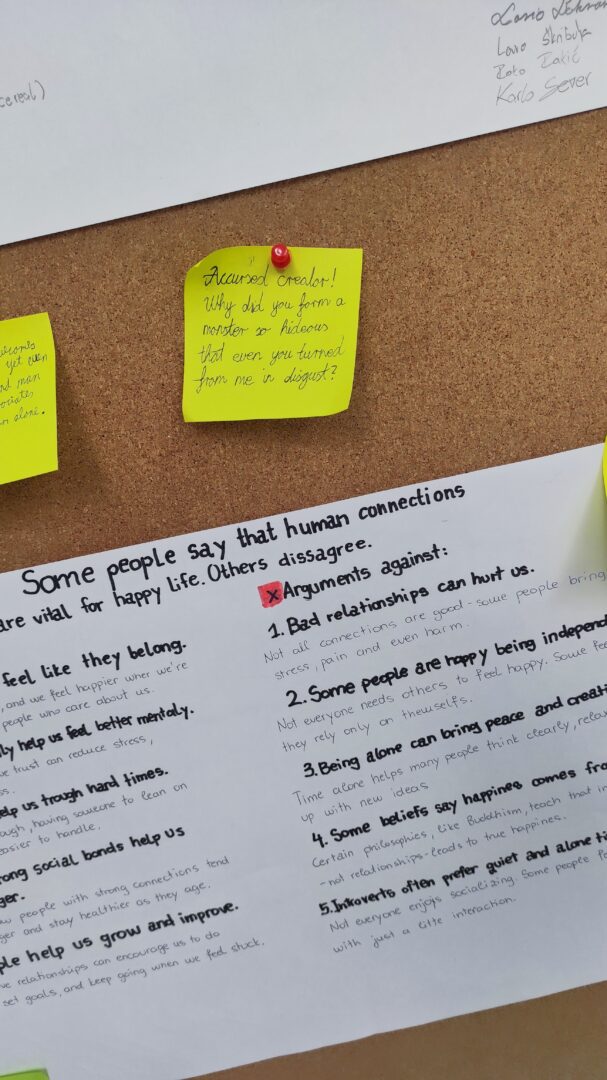 cereal)
Lovro Škribulja
Karlo Sever
Accursed creator!
Why did you form a
monster so hideous
that even you turned
from me in disgust?
yet even
and man
alone.
Some people say that human connections
are vital for happy life. Others dissagree.
feel like they belong.
, and we feel happier when we're
people who care about us.
help us feel better mentaly.
we trust can reduce stress,
help us trough hard times.
having someone to lean on
easier to handle.
strong social bonds help us
people with strong connections tend
and stay healthier as they age.
help us grow and improve.
relationships can encourage us to do
set goals, and keep going when we feel stuck.
x Arguments against:
1. Bad relationships can hurt us.
Not all connections are good - some people bring
stress, pain and even harm.
2. Some people are happy being independ
Not everyone needs others to feel happy. Some
they rely only on themselfs.
3. Being alone can bring peace and creati
Time alone helps many people think clearly, relax
up with new ideas
4. Some beliefs say happines comes fro
Certain philosophies, like Buddhism, teach that in
- not relationships - leads to true happines.
5. Introverts often prefer quiet and alone ti
Not everyone enjoys socializing. Some people
with just a litte interaction.